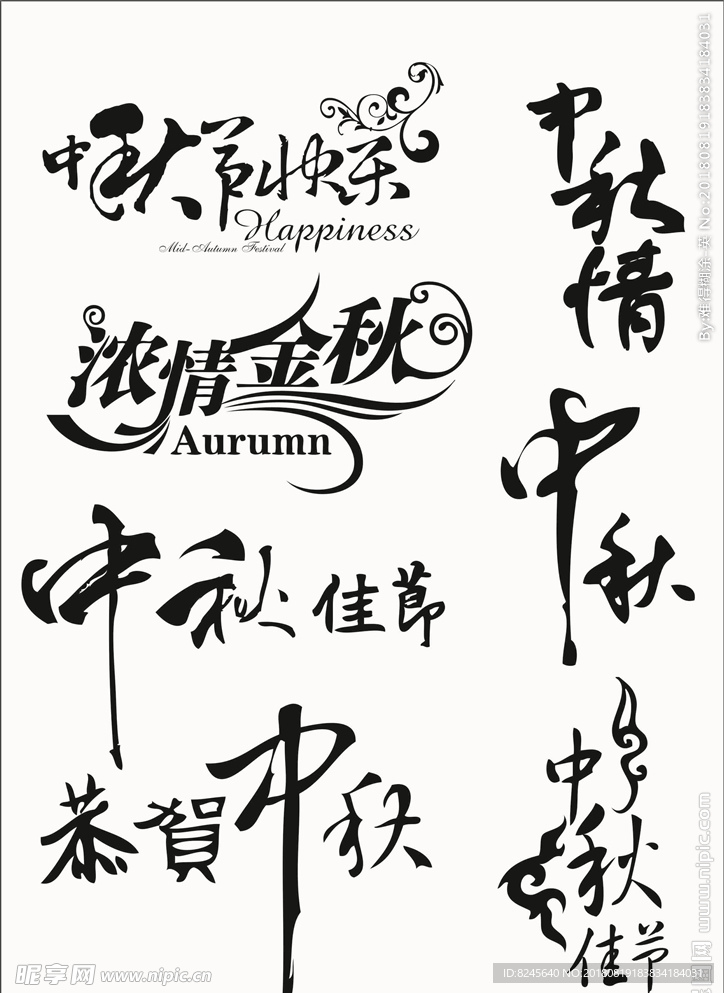 中秋节快乐
Happiness
Mid-Autumn Festival
浓情金秋
Aurumn
中秋佳節
恭賀中秋
中秋情
中秋
中秋
佳节
By:难得糊涂 英 No:20180819183834184031
昵享网 www.nipic.cn
www.nipic.com
ID:8245640 NO:20180819183834184031